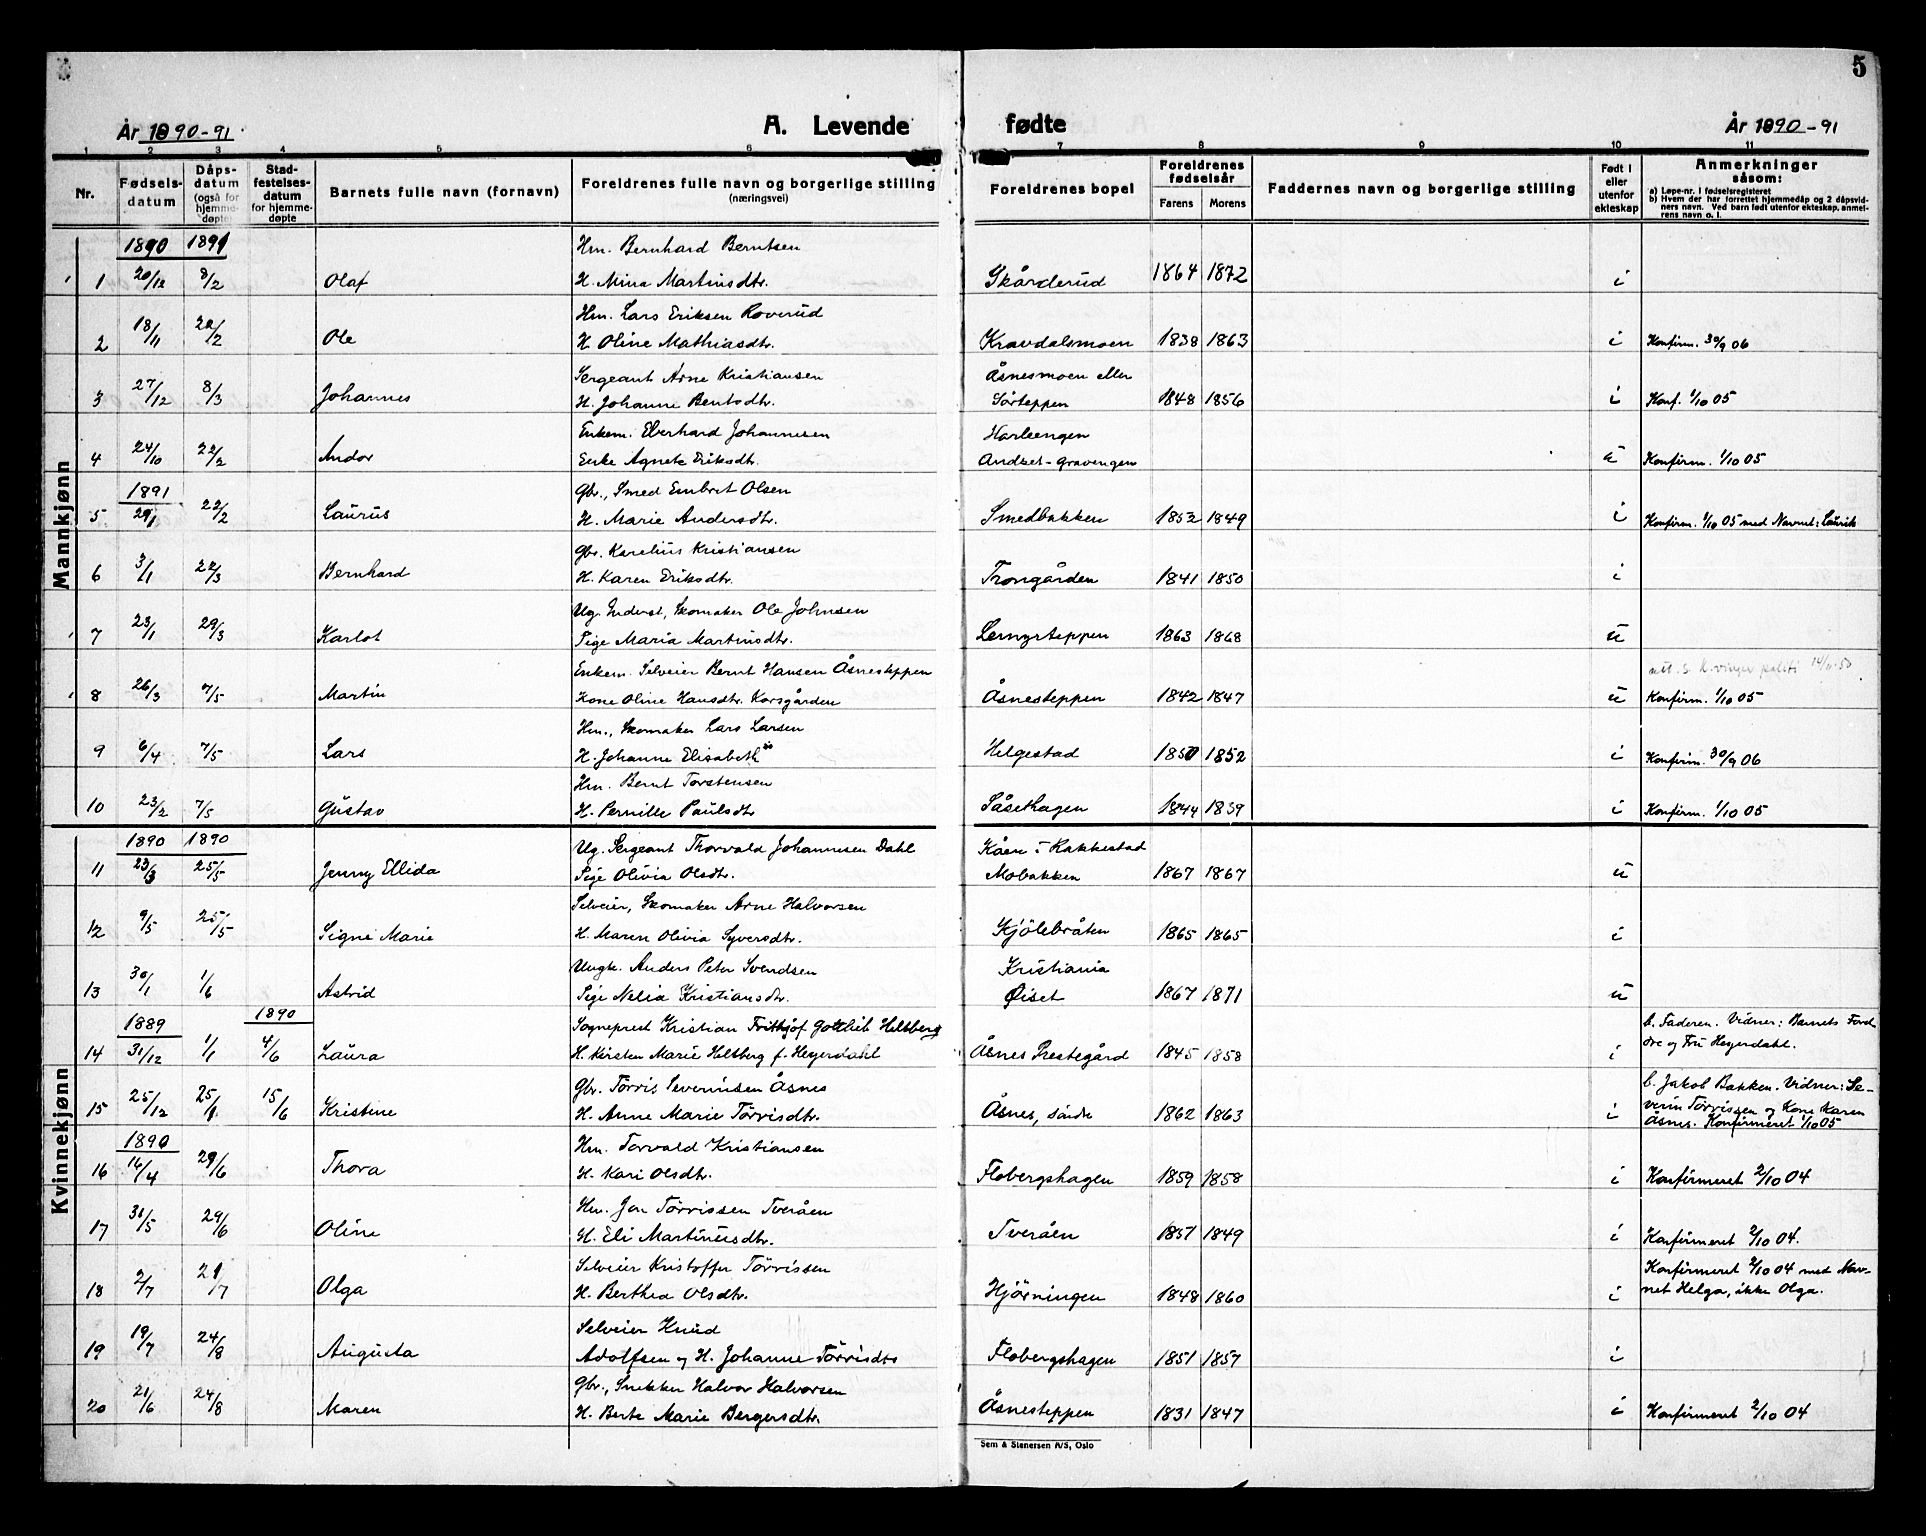 5
År 1890-91
A. Levende
fødte
År 1890-91
1 2 3 4 5 6 7 8 9 10 11
Nr.
Fødsels-
datum
Dåps-
datum
(også for
hjemme-
døpte)
Stad-
festelses-
datum
for hjemme-
døpte
Barnets fulle navn (fornavn)
Foreldrenes fulle navn og borgerlige stilling
(næringsvei)
Foreldrenes bopel
Foreldrenes
fødselsår
Farens Morens
Faddernes navn og borgerlige stilling
Født i
eller
utenfor
ekteskap
Anmerkninger
såsom:
a) Løpe-nr. i fødselsregisteret
b) Hvem der har forrettet hjemmedåp og 2 dåpsvid-
ners navn. Ved barn født utenfor ekteskap, anmel-
rens navn o. l.
Mannkjønn
1890 1891 Hm. Bernhard Berntsen
1 20/12 8/2 Olaf H. Mina Martinsdtr. Skårderud 1864 1872 i
Hm. Lars Eriksen Roverud
2 18/11 20/2 Ole H. Oline Mathiasdtr. Kravdalsmoen 1838 1863 i Konfirm. 30/9 06
Sergeant Arne Kristiansen Åsnesmoen eller
3 27/12 8/3 Johannes H. Johanne Bentsdtr. Sörteppen 1848 1856 i Konf. 1/10 05
Enkem. Eberhard Johannesen
4 24/10 22/2 Andor Enke Agnete Eriksdtr. Konfirm. 1/10 05
1891 Gbr., Smed Embret Olsen
5 29/1 22/2 Laurus H. Marie Andersdtr. Smedbakken 1852 1849 i Konfirm. 1/10 05 med Navnet: Laurik
Gbr. Karelius Kristiansen
6 3/1 22/3 Bernhard H. Karen Eriksdtr. Trongården 1841 1850 i
Ug. Inderst, Skomaker Ole Johnsen
7 23/1 29/3 Karlot Pige Maria Martinsdtr. Lemyrteppen 1863 1868 u
Enkem. Selveier Bernt Hansen Åsnesteppen 14/11-50
8 26/3 7/5 Martin Kone Oline Hansdtr. Korsgården Åsnesteppen 1842 1847 u Konfirm. 1/10 05
Hm., Skomaker Lars Larsen
9 6/4 7/5 Lars H. Johanne Elisabeth Helgestad 1850 1852 i Konfirm. 30/9 06
Hm. Bernt Torstensen
10 23/2 7/5 Gustav H. Pernille Paulsdtr. Såsethagen 1844 1839 i Konfirm. 1/10 05
Kvinnekjønn
1890 1890 Ug. Sergeant Thorvald Johannesen Dahl Kåen i Rakkestad
11 23/3 25/5 Jenny Ellida Pige Olivia Olsdtr. Mobakken 1867 1867 u
Selveier, Skomaker Arne Halvorsen
12 9/5 25/5 Signe Marie H. Maren Olivia Syversdtr. Kjölebråten 1865 1865 i
Ungk. Anders Peter Svendsen Kristiania
13 30/1 1/6 Astrid Pige Nelia Kristiansdtr. Öiset 1867 1871 u
1889 1890 Sogneprest Kristian Frithjof Gottlieb Hiltberg b. Faderen. Vidner: Barnets Foræl-
14 31/12 1/1 4/6 Laura H. Kirsten Marie Hiltberg f. Heyerdahl Åsnes Prestegård 1845 1858 i dre og Fru Heyerdahl.
Gbr. Törris Severinsen Åsnes b. Jakob Bakken. Vidner: Se-
15 25/12 25/1 15/6 Kristine H. Anne Marie Törrisdtr. Åsnes, söndre 1862 1863 i verin Törrissen og Kone Karen
Åsnes. Konfirmeret 1/10 05
1890 Hm. Torvald Kristiansen
16 16/4 29/6 Thora H. Kari Olsdtr. Flobergshagen 1859 1858 i Konfirmeret 2/10 04
Hm. Jon Törrissen Tveråen
17 31/5 29/6 Oline H. Eli Martinusdtr. Tveråen 1857 1849 i Konfirmeret 2/10 04.
Selveier Kristoffer Törrissen Konfirmeret 2/10 04 med Nav-
18 2/7 21/7 Olga H. Berthea Olsdtr. Hjörningen 1848 1860 i net Helga, ikke Olga.
Selveier Knud
19 19/7 24/8 Augusta Adolfsen og H. Johanne Törrisdtr Flobergshagen 1851 1857 i
Gbr., Snekker Halvor Halvorsen
20 21/6 24/8 Maren H. Berte Marie Bergersdtr. Åsnesteppen 1831 1847 i Konfirmeret 2/10 04
Sem & Stenersen A/S, Oslo